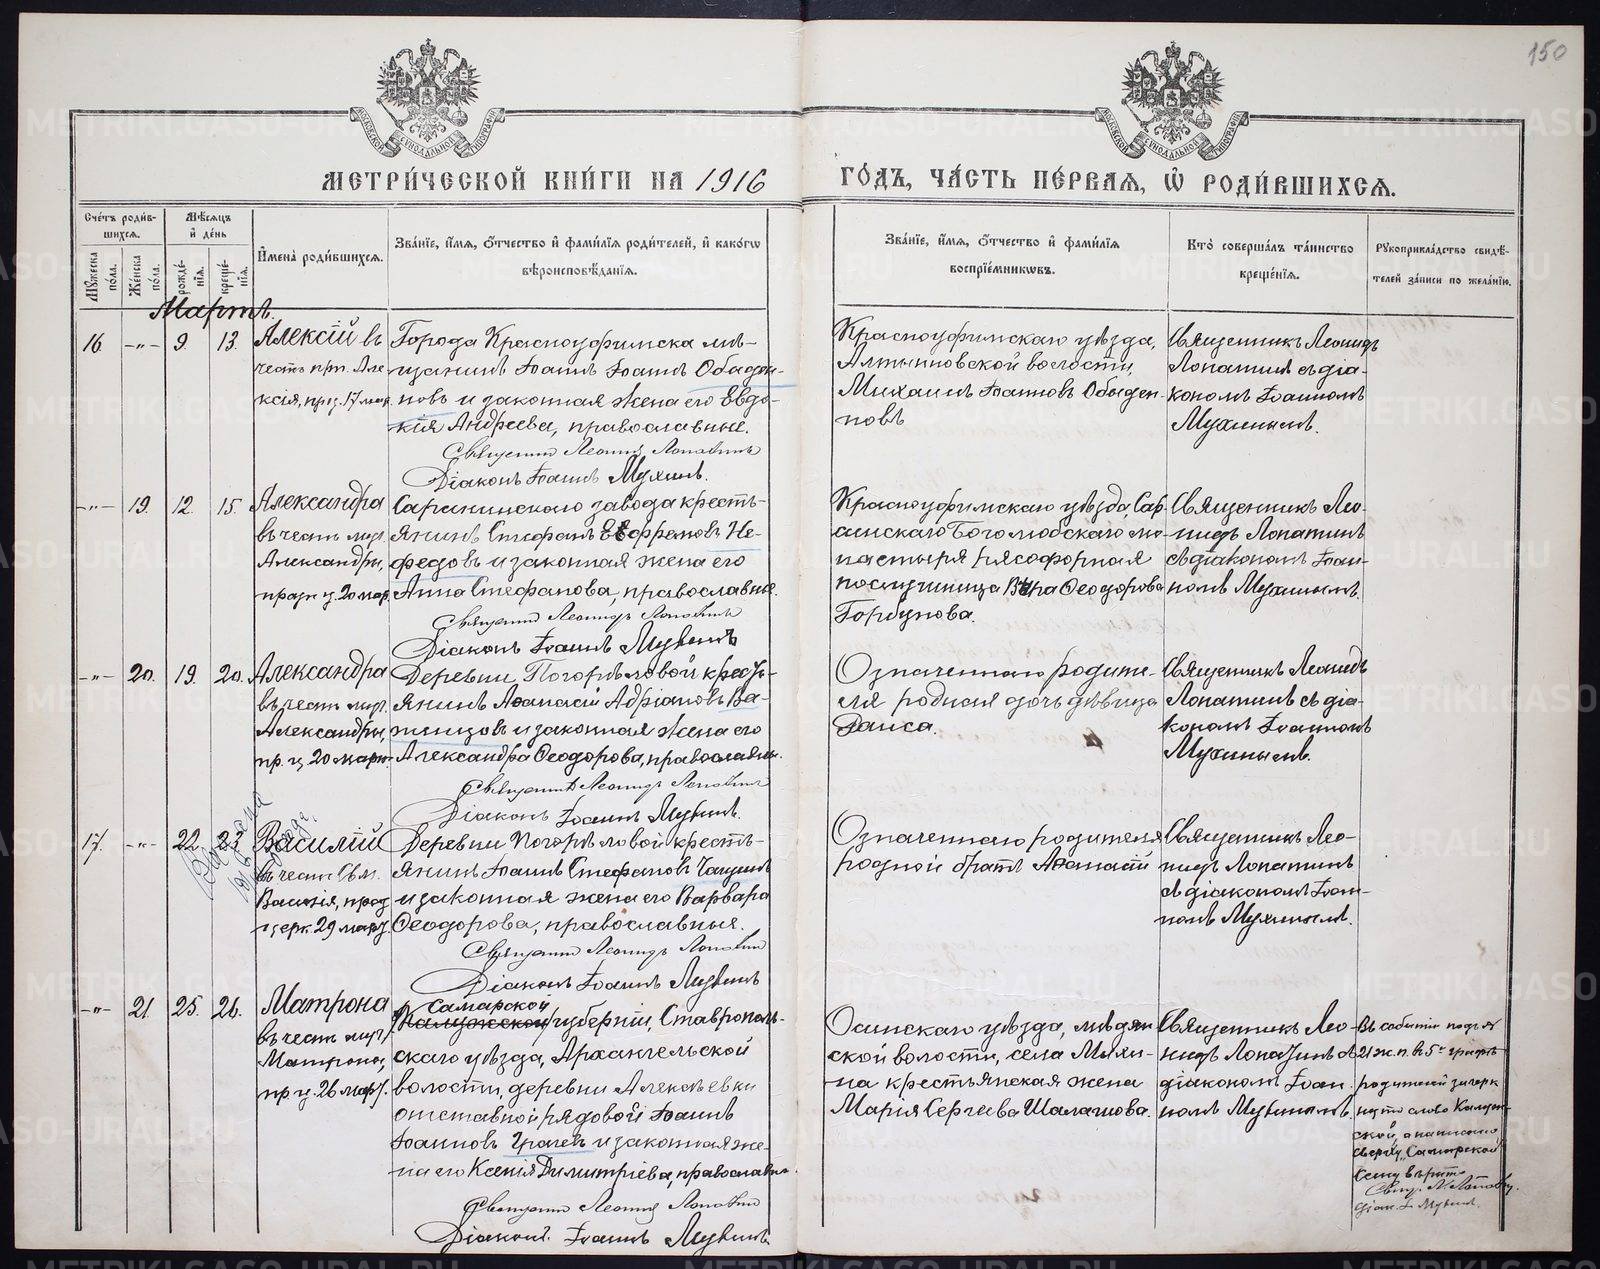 150
МЕТРИ́ЧЕСКОЙ КНИ́ГИ НА 1916
ГО́ДЪ, ЧА́СТЬ ПЕ́РВАѦ, Ѡ҆ РОДИ́ВШИХСѦ.
Сче́тъ роди́в-
шихсѧ.
Мѣсѧцъ
и҆ де́нь
Мꙋ́жеска
по́ла.
Же́нска
по́ла.
рожде́-
нїѧ.
креще́-
нїѧ.
И҆мена̀ роди́вшихсѧ.
Зва́нїе, и҆́мѧ, ѻ҆́тчество и҆ фами́лїѧ роди́телей, и҆ како́гѡ
вѣроисповѣ́данїѧ.
Зва́нїе, и҆́мѧ, ѻ҆́тчество и҆ фами́лїѧ
воспрїе́мникѡвъ.
Кто̀ соверша́лъ та́инство
креще́нїѧ.
Рꙋкоприкла́дство свидѣ́-
телей за́писи по жела́нїю.
Мартъ.
16. -"- 9. 13. Алексій въ
честь прп. Але-
ксія, пр. ц. 17 мар.
Города Красноуфимска мѣ-
щанинъ Іоаннъ Іоаннъ Обыден-
новъ и законная жена его Евдо-
кія Андреева, православные.
Священникъ Леонидъ Лопатинъ
Діаконъ Іоаннъ Мухинъ.
Красноуфимскаго уѣзда,
Алтыновской волости,
Михаилъ Іоанновъ Обыден-
новъ
Священникъ Леонидъ
Лопатинъ съ діа-
кономъ Іоанномъ
Мухинымъ.
-"- 19. 12. 15. Александра
въ честь муч.
Александры,
праздн. ц. 20 мар.
Саранинскаго завода кресть-
янинъ Стефанъ Евфремовъ Не-
федовъ и законная жена его
Анна Стефанова, православные.
Священникъ Леонидъ Лопатинъ
Діаконъ Іоаннъ Мухинъ
Красноуфимскаго уѣзда, Сар-
синскаго Боголюбскаго мо-
настыря рясофорная
послушница Вѣра Ѳеодорова
Горбунова.
Священникъ Лео-
нидъ Лопатинъ
съ діакономъ Іоан-
номъ Мухинымъ.
-"- 20. 19. 20. Александра
въ честь муч.
Александры,
пр. ц. 20 март.
Деревни Погорѣловой кресть-
янинъ Аѳанасій Адріановъ Ва-
женцовъ и законная жена его
Александра Ѳеодорова, православн.
Священникъ Леонидъ Лопатинъ
Діаконъ Іоаннъ Мухинъ.
Означеннаго родите-
ля родная дочь дѣвица
Раиса.
Священникъ Леонидъ
Лопатинъ съ діа-
кономъ Іоанномъ
Мухинымъ.
17. -"- 22. 23. Василій
въ честь Свм.
Василія, празд.
церк. 22 март.
Деревни Погорѣловой кресть-
янинъ Іоаннъ Стефановъ Чащинъ
и законная жена его Варвара
Ѳеодорова, православныя.
Священникъ Леонидъ Лопатинъ
Діаконъ Іоаннъ Мухинъ
Означеннаго родителя
родной братъ Аѳанасій
Священникъ Лео-
нидъ Лопатинъ
съ діакономъ Іоан-
номъ Мухинымъ.
-"- 21. 25. 26. Матрона
въ честь муч.
Матроны,
пр. ц. 26 март.
Самарской
Калужской губерніи, Ставрополь-
скаго уѣзда, Архангельской
волости, деревни Алексѣевки
отставной рядовой Іоаннъ
Іоанновъ Грачевъ и законная же-
на его Ксенія Димитріева, православн.
Священникъ Леонидъ Лопатинъ
Діаконъ Іоаннъ Мухинъ.
Осинскаго уѣзда, мѣдян-
ской волости, села
крестьянская жена
Марія Сергѣева Шалашова.
Священникъ Лео-
нидъ Лопатинъ съ
діакономъ Іоан-
номъ Мухинымъ.
Въ событіи подъ №
21 ж. п. въ 5й графѣ
родителей зачерк-
нуто слово Калуж-
ской, а написано
сверху "Самарской"
сему вѣрить
Свящ. Л. Лопатинъ.
Діак. І. Мухинъ.
METRIKI.GASO-URAL.RU